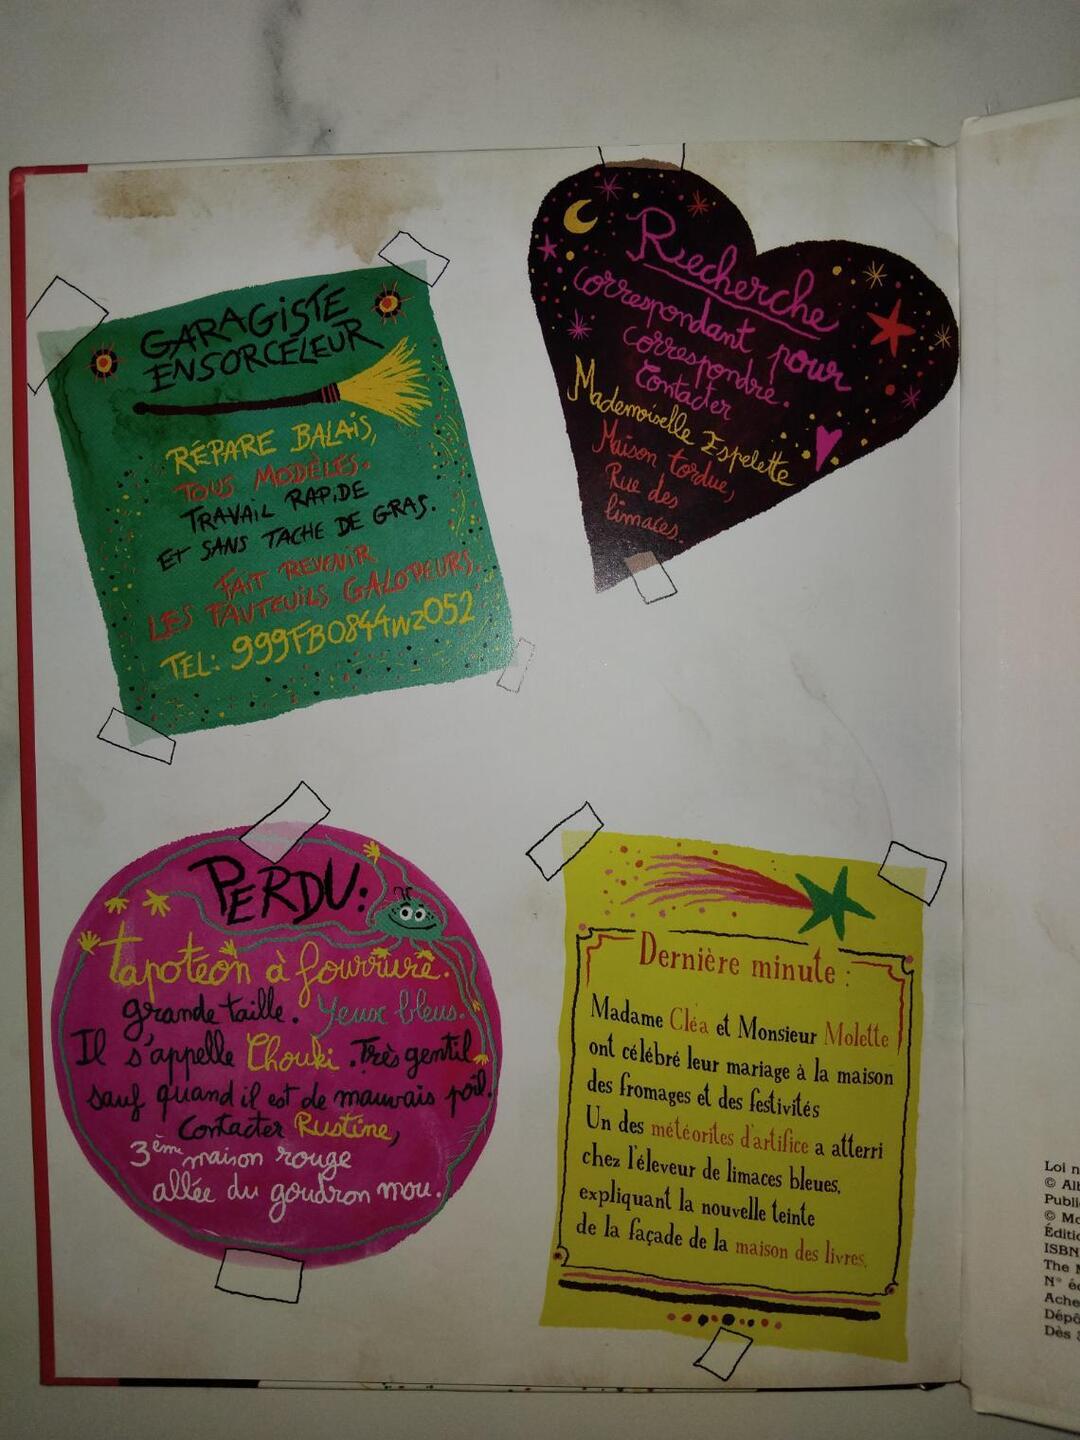 GARAGISTE
ENSORCELEUR
RÉPARE BALAIS,
TOUS MODÈLES.
TRAVAIL RAPIDE
ET SANS TACHE DE GRAS.
FAIT REVENIR
LES FAUTEUILS GALOPEURS
TEL: 999FB0844WZ052
Recherche
correspondant pour
correspondre.
Contacter
Mademoiselle Espelette
Maison tordue,
Rue des
limaces.
PERDU:
tapotéon à fourrure.
grande taille. Yeux bleus.
Il s'appelle Chouki. Très gentil
sauf quand il est de mauvais poil.
Contacter Rustine,
3ème maison rouge
allée du goudron mou.
Dernière minute :
Madame Cléa et Monsieur Molette
ont célébré leur mariage à la maison
des fromages et des festivités
Un des météorites d'artifice a atterri
chez l'éleveur de limaces bleues,
expliquant la nouvelle teinte
de la façade de la maison des livres.
Loi n
© Alb
Publi
© Mo
Éditio
ISBN
The M
N° éd
Ache
Dépô
Dès 3